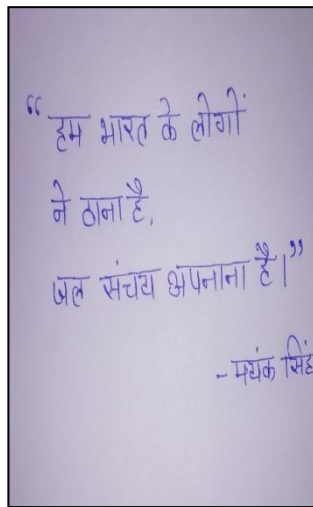 “हम भारत के लोगों
ने ठाना है,
जल संचय अपनाना है।”
- मयंक सिंह